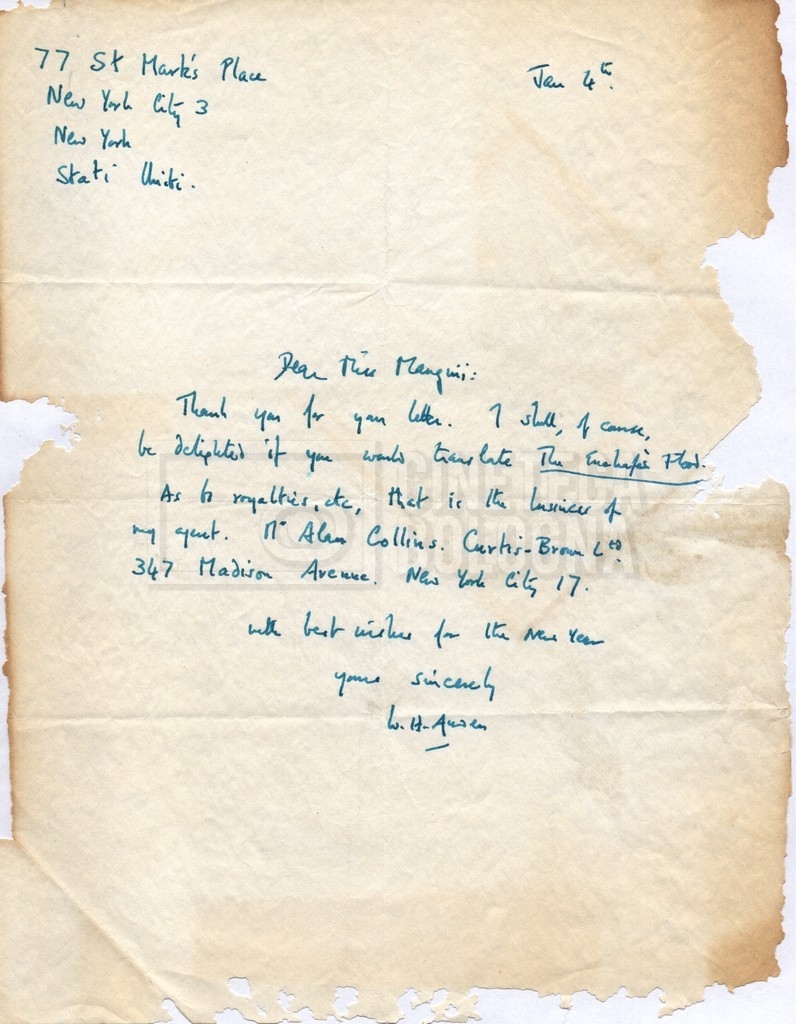 77 St Mark's Place
Jan 4th.
New York City 3
New York
Stati Uniti.
Dear Miss Mangini:
Thank you for your letter. I shall, of course,
be delighted if you would translate The Enchafèd Flood.
As to royalties, etc, that is the business of
my agent. Mr Alan Collins. Curtis-Brown Ltd.
347 Madison Avenue. New York City 17.
with best wishes for the New Year
yours sincerely
W.H. Auden
CINETECA
BOLOGNA